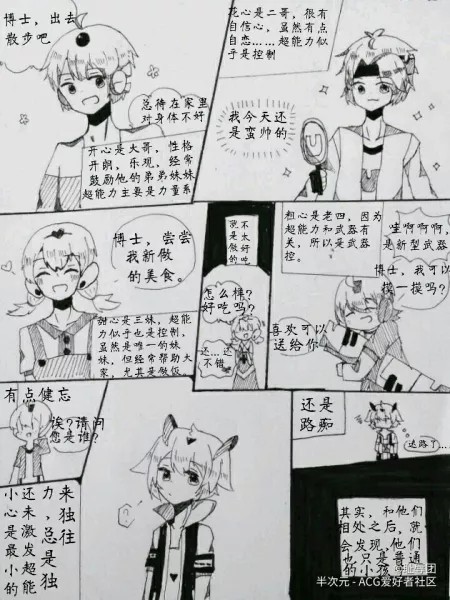 博士，出去
散步吧
总待在家里
对身体不好
开心是大哥，性格
开朗、乐观，经常
鼓励他的弟弟妹妹
超能力主要是力量系
花心是二哥，很有
自信心，虽然有点
自恋……超能力似
乎是控制
我今天还
是蛮帅的
博士，尝尝
我新做
的美食。
甜心是三妹，超能
力似乎也是控制，
虽然是唯一的妹
妹，但经常帮助大
家，尤其是做饭
就是做的
不太好吃
怎么样？
好吃吗？
还…还
不错
粗心是老四，因为
超能力和武器有
关，所以是武器
控。
哇啊啊啊，
是新型武器
博士，我可以
摸一摸吗？
喜欢可以
送给你
有点健忘
诶？请问
您是谁？
小心是最小的
还未激发超能
力，总是独
来独往
还是
路痴
迷路了…
其实，和他们
相处之后，就
会发现，他们
也只是普通
的小孩
半次元 - ACG爱好者社区